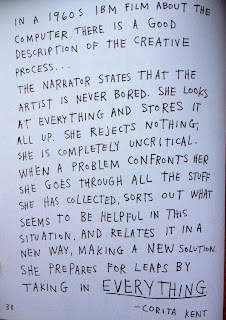 IN A 1960s IBM FILM ABOUT THE
COMPUTER THERE IS A GOOD
DESCRIPTION OF THE CREATIVE
PROCESS...
THE NARRATOR STATES THAT THE
ARTIST IS NEVER BORED. SHE LOOKS
AT EVERYTHING AND STORES IT
ALL UP. SHE REJECTS NOTHING;
SHE IS COMPLETELY UNCRITICAL.
WHEN A PROBLEM CONFRONTS HER
SHE GOES THROUGH ALL THE STUFF
SHE HAS COLLECTED, SORTS OUT WHAT
SEEMS TO BE HELPFUL IN THIS
SITUATION, AND RELATES IT IN A
NEW WAY, MAKING A NEW SOLUTION.
SHE PREPARES FOR LEAPS BY
TAKING IN EVERYTHING.
—CORITA KENT
38